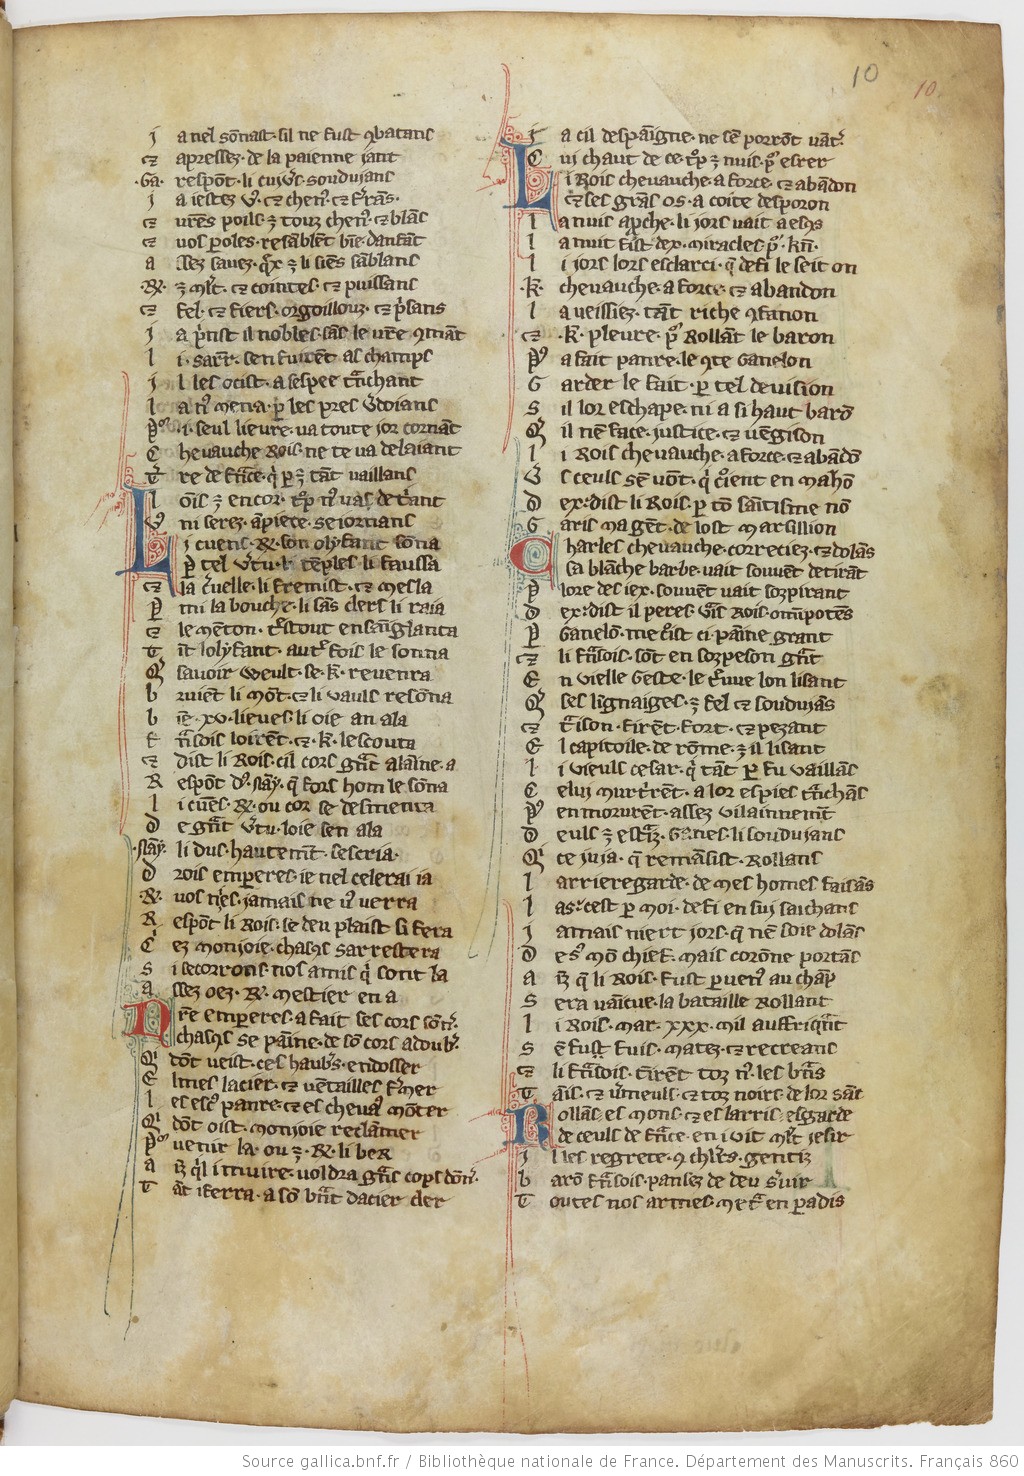 10
10
J a nel sonast. sil ne fust ꝯbatans
⁊ apressez. de la paienne jant
.Ga. respōt. li cuiūs. soudujans
J a iestez v°. ⁊ chen°. ⁊ frans.
⁊ vr̄es poils. ⁊ touz chen°. ⁊ blās
⁊ vos ꝑoles. resāblēt biē danfāt
a ssez sauez. q̄x ⁊ li siēs sāblans
.R. ⁊ ml̄t. ⁊ cointes. ⁊ puissans
⁊ fel. ⁊ fiers. orgoillouz. ⁊ p̄sans
J a p̄nist il nobles. sās le vr̄e ꝯmāt
l i. sarr̄. sen fuirēt as champs
J l les ocist. a sespee trāchant
l a n° mena. ꝑ les pres v̄doians
P° .i. seul lieure. va toute jor cornāt
C heuauche Rois. ne te va delaiant
T re de frāce. q̄ ꝑ ⁊ tāt vaillans
l ōis ⁊ encor. t°p n° vas detriant
V ni serez. āpiece. seiornans
L i cuens. R. son olyfant sōna
ꝑ tel v̄tu. lᵉ tēples li faussa
⁊ la c̄uelle. li fremist. ⁊ mesla
P mi la bouche. li sās clers li raia
⁊ le mēton. t°stout ensāglanta
T īt lolyfant. autr̄ fois le sonna
Q̄ sauoir weult. se. k. reuenra
b ruiēt li mōt. ⁊ li vauls resōna
b iē .xv. lieues. li oie an ala
F rāsois loirēt. ⁊ .k. lescouta
⁊ dist li Rois. cil cors gr̄t alaīne. a
R espōt d°. nay. q̄ fors hom le sōna
l i cuēs. R. ou cor se desmenta
D e gr̄t v̄tu. loie sen ala
.nay. li dus. hautemt̄. sescria.
D rois emperes. ie nel celerai ia
R. vos n̄es. jamais ne v° verra
R espōt li Rois. se deu plaist si fera
C ez monjoie. chascꝰ sarrestera
S i secorrons. nos amis q̄ sont la
a ssez oez. R. mestier en a
N r̄e emperes. a fait ses cors sōn̄.
chascꝰ se paīne. de sō cors adoub̄.
Q̄ dōt veist. ces haub̄s. endosser
E lmes lacier. ⁊ vētailles fr̄mer
l es esc° panre. ⁊ es cheua° mōter
Q̄ dōt oist. monjoie reclāmer
P° venir la. ou ⁊. R. li ber
a īz q̄l i muire. voldra gr̄s cops dōn̄.
T āt iferra. a sō br̄t dacier cler
J a cil despaīgne. ne sē porrōt vāt̄
C ui chaut de ce. t°p ⁊ nuis. p° ester
L i Rois cheuauche. a force. ⁊ abādon
⁊ ses grās os. a coite desporon
l a nuis aꝓche. li jors vait a esꝯs
l a nuit fist dex. miracles p°. kn̄.
l i jors lors esclarci. q̄ defi le seit on
.K. cheuauche. a force. ⁊ abandon
l a veissiez. tāt riche ꝯfanon
⁊ .K. pleure. p° Rollāt le baron
P° a fait panre. le ꝯte Ganelon
G arder le fait. ꝑ tel deuision
S il lor eschape. ni a si haut barō
Q̄ il nē face. justice. ⁊ vēgison
l i Rois cheuauche. a force. ⁊ abādō
V s ceuls sē vōt. q̄ c°ient en mahō
D ex. dist li Rois. ꝑ tō saītisme nō
G aris ma gēt. de lost marsillion
C harles cheuauche. correciez. ⁊ dolās
sa blāche barbe. vait souuēt detirāt
P lore des iex. souuēt vait sozpirant
D ex. dist il peres. v̄is Rois. omīpotēs
P Ganelō. me c°ist ci paīne grant
⁊ li frāsois. sōt en sozpeson gr̄t
E n vielle geste. le tr̄uue lon lisant
Q̄ ses lignaiges. ⁊ fel ⁊ soudujās
⁊ traison. firēt. fort. ⁊ pezant
E l capitoile. de rōme. ⁊ il lisant
l i vieuls cesar. q̄ tāt ꝑ fu vaillās
C eluj murtrirēt. a lor espies trāchās
P° en morurēt. assez vilainnemt̄
D euls ⁊ estraiz. Ganes. li soudujans
Q̄ ce juja. q̄ remāsist. Rollans
l arrieregarde. de mes homes faisās
l as. cest ꝑ moi. defi en suj saichans
J amais niert jors. q̄ nē soie dolās
D es° mō chief. mais corōne portās
a īz q̄ li Rois. fust ꝑuen° au chāp
S era vāicue. la bataille Rollant
l i Rois. mar. xxx. mil auffriq̄nt
S ē fust fuis. matez. ⁊ recreans
⁊ li frāsois. firēt toz n°. les br̄s
T aīs. ⁊ v̄meuls. ⁊ toz noirs. de lor sāc
R ollās. es mons. ⁊ es larris. esgarde
de ceuls de frāce. en i vit ml̄t jesir
J l les regrete. ꝯ chlr̄s. gentiz
b arō frāsois. pansez de deu s̄uir
T outes nos armes. mete en paradis
Source gallica.bnf.fr / Bibliothèque nationale de France. Département des Manuscrits. Français 860